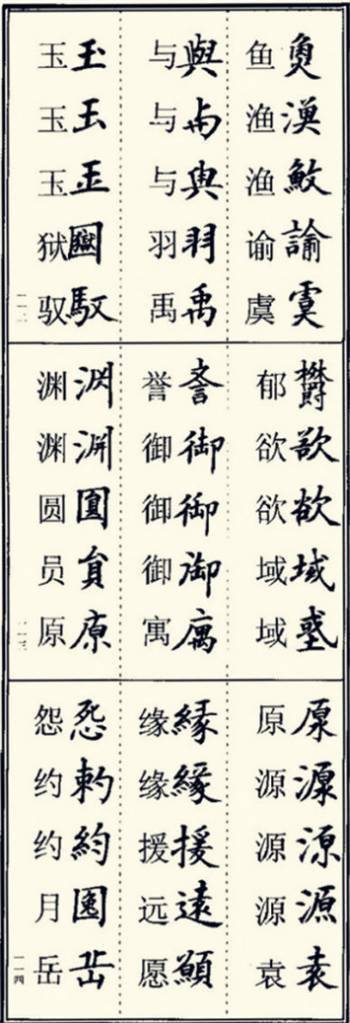 諭
鱼渔渔谕虞
與与與羽禹
与与与羽禹
玉玉馭
玉玉玉狱驭
一一二
欝欲域
郁欲欲域域
御御御
誉御御御寓
渊員原
渊渊圆员原
一一三
原源源源袁
原源源源袁
緣緣援遠願
缘缘援远愿
怨約囝
怨约约月岳
一一四